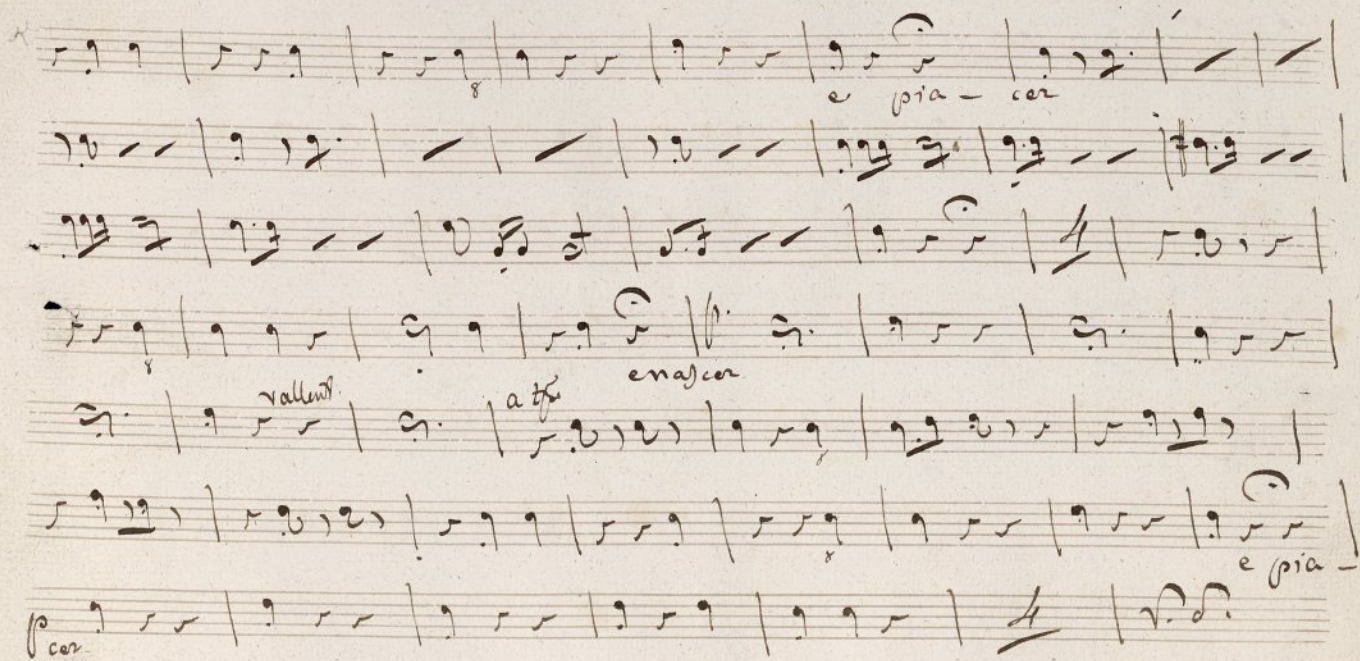 e pia - cer
4
enascer
rallent. a tpo
e pia -
p cer
4
V. S.